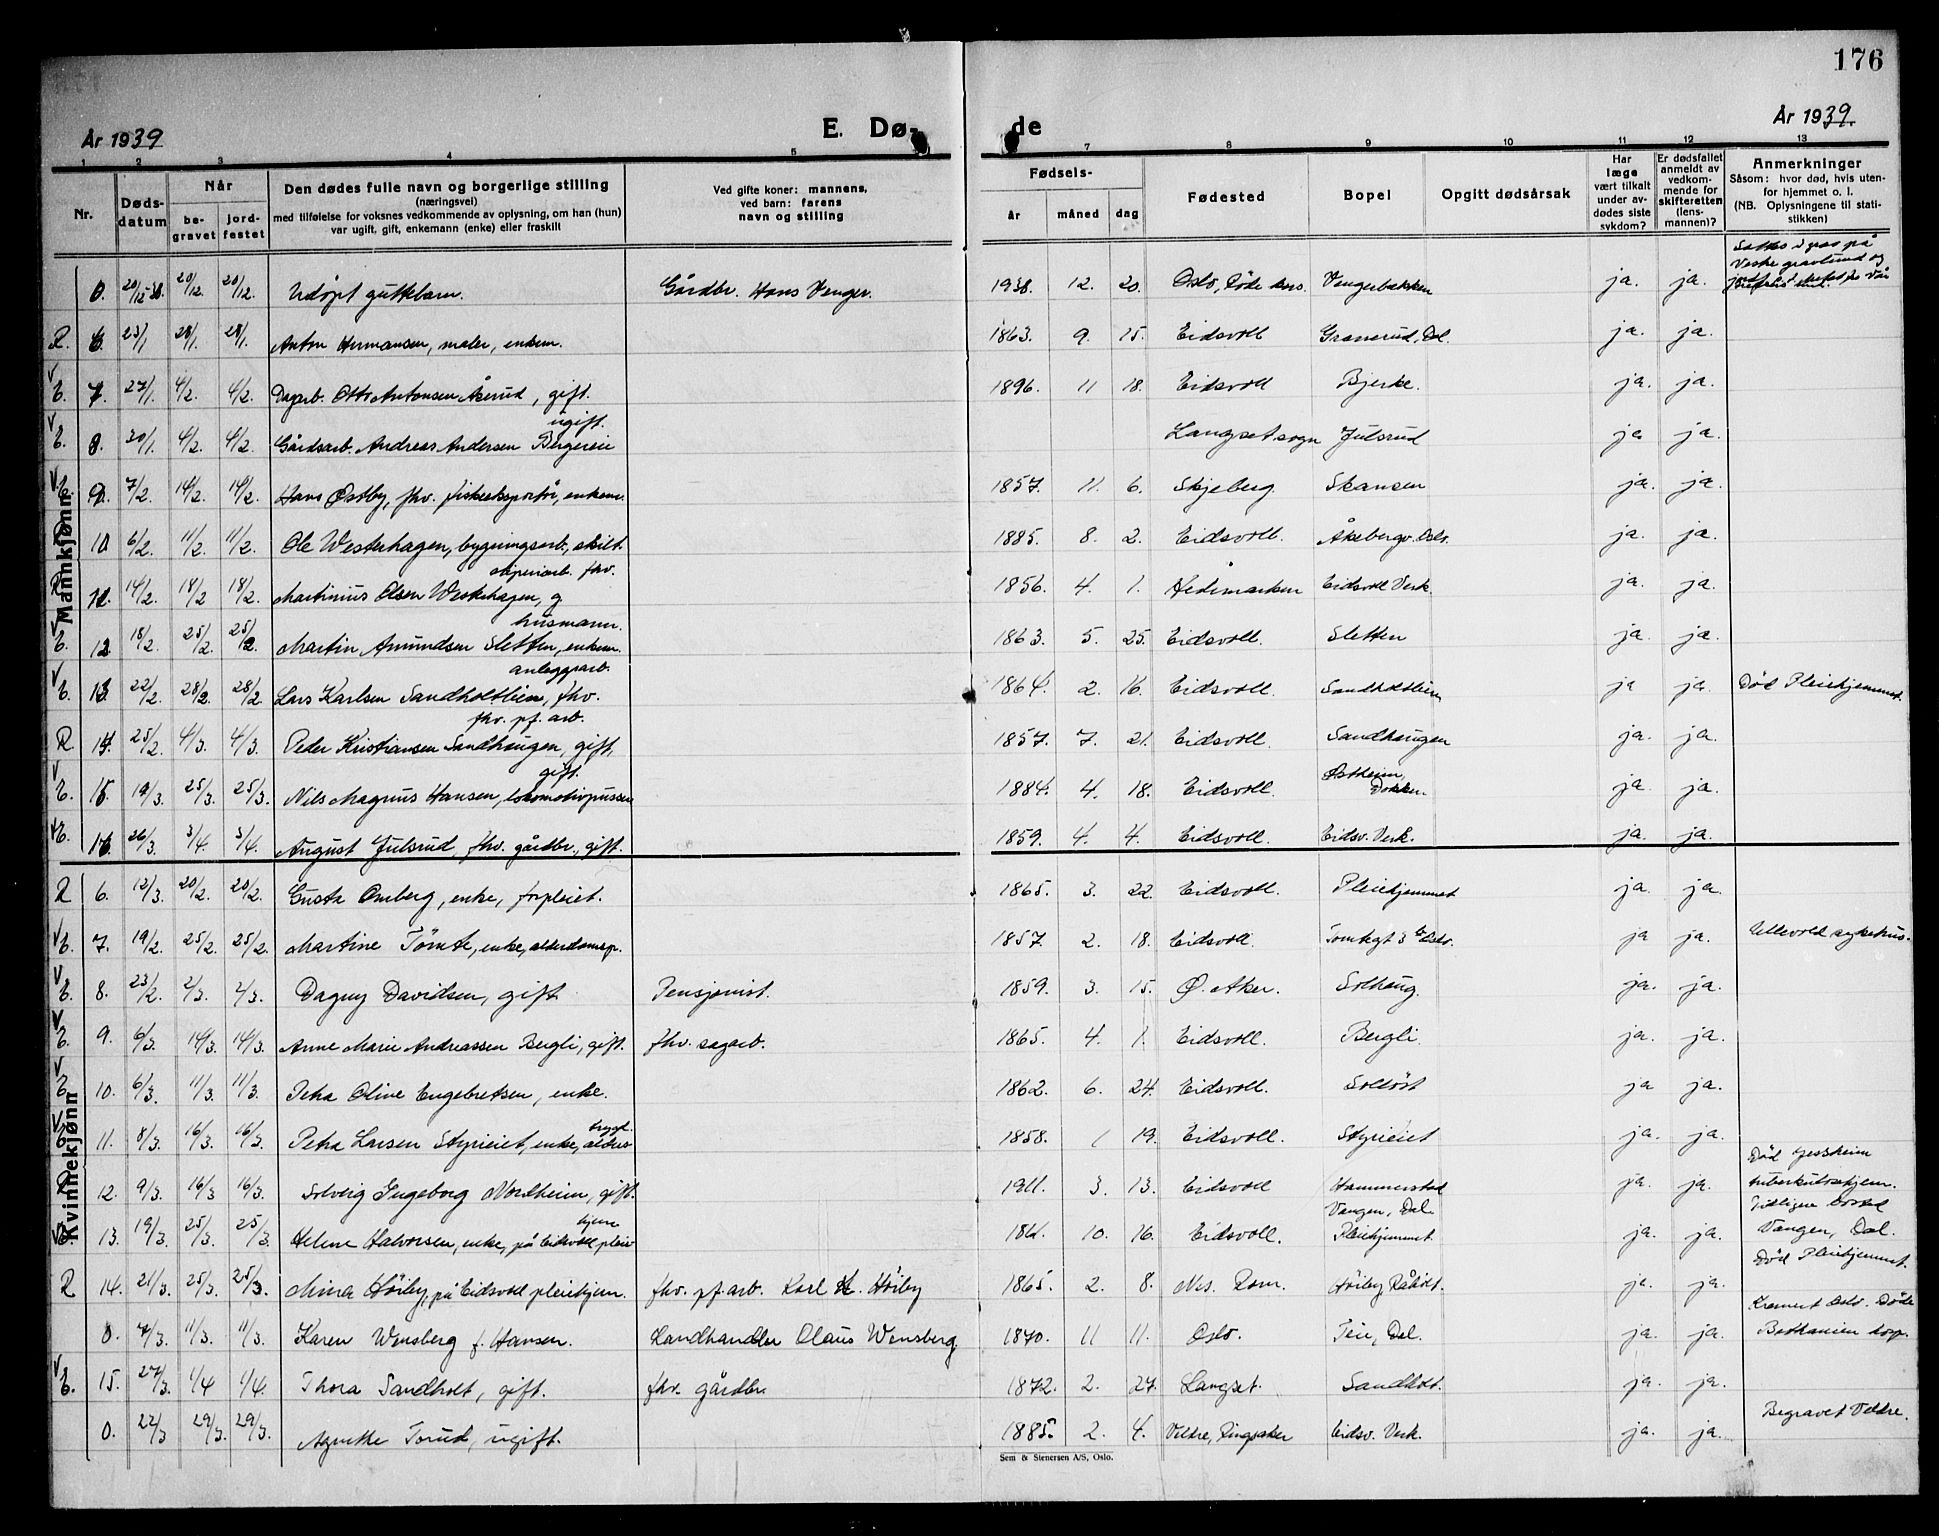 176
År 1939
E. Dø-
de
År 1939.
1 2 3 4 5 7 8 9 10 11 12 13
Nr.
Døds-datum
Når
be-gravet
jord-festet
Den dødes fulle navn og borgerlige stilling
(næringsvei)
med tilføielse for voksnes vedkommende av oplysning, om han (hun)
var ugift, gift, enkemann (enke) eller fraskilt
Ved gifte koner: mannens,
ved barn: farens
navn og stilling
Fødsels-
år måned dag
Fødested
Bopel
Opgitt dødsårsak
Har læge vært tilkalt under av-dødes siste sykdom?
Er dødsfallet anmeldt av vedkom-mende for skifteretten (lens-mannen)?
Anmerkninger
Såsom: hvor død, hvis uten-
for hjemmet o. l.
(NB. Oplysningene til stati-
stikken)
Mannkjønn
0. 20/12-38. 20/12. 20/12. Udöpt guttebarn. Gårdbr. Hans Venger. 1938. 12. 20. Oslo, Røde kors. Vengerbakken ja. ja.
R. 6. 23/1 28/1. 28/1. Anton Hermansen, maler, enkem. 1863. 9. 15. Eidsvoll Granerud, Dal. ja. ja.
E. 7. 27/1. 4/2. 4/2. Dagarb. Otto Antonsen Åserud, gift. 1896. 11 18. Eidsvoll Bjerke. ja. ja.
E. 8. 30/1. 4/2. 4/2. Gårdsarb. Andreas Andersen Bergereie ugift. Langset sogn Julsrud ja ja.
E. 9. 7/2. 14/2. 14/2. Hans Østby, fhv. fiskeeksportör, enkem. 1857. 11. 6. Skjeberg. Skansen ja. ja.
R 10 6/2. 11/2. 11/2. Ole Westerhagen, bygningsarb., skilt. 1885. 8. 2. Eidsvoll. Åkebergv. Oslo. ja. ja.
R 11. 14/2. 18/2 18/2. Martinius Olsen Westerhagen, g. fhv. 1856. 4. 1. Hedemarken Eidsvoll Verk. ja. ja.
E. 12 18/2. 25/2. 25/2. Martin Amundsen Sletten, enkem. husmann. 1863. 5. 25. Eidsvoll. Sletten ja. ja.
E. 13 22/2. 28/2. 28/2. Lars Karlsen Sandholtlien, fhv. anleggsarb. 1864. 2. 16. Eidsvoll. Sandholtlien ja ja. Död Pleiehjemmet.
R 14. 25/2. 4/3. 4/3. Peder Kristiansen Sandhaugen, gift. fhv. pf. arb. 1857. 7. 21. Eidsvoll. Sandhaugen ja. ja.
E. 15. 19/3. 25/3. 25/3. Nils Magnus Hansen, lokomotivpusser gift. 1884. 4. 18. Eidsvoll. Østheim, Dokken. ja. ja.
E. 16. 26/3. 3/4. 3/4. August Julsrud, fhv. gårdbr., gift. 1859. 4. 4. Eidsvoll. Eidsv. Verk. ja. ja.
Kvinnekjønn
R 6. 12/3. 20/2. 20/2. Gusta Omberg, enke, forpleiet. 1865. 3. 22. Eidsvoll. Pleiehjemmet ja. ja.
E. 7. 19/2. 25/2. 25/2. Martine Tömte, enke, alderdomsp. 1857. 2. 18. Eidsvoll. Tomtegt 3 Oslo. ja ja. Ullevold sykehus.
E. 8. 23/2. 2/3. 2/3. Dagny Davidsen, gift. Pensjonist. 1859. 3. 15. Ø. Aker. Solhaug. ja. ja.
E. 9. 6/3. 14/3. 14/3. Anne Marie Andreassen Bergli, gift. fhv. sagarb. 1865. 4. 1. Eidsvoll. Bergli. ja. ja.
E. 10. 6/3. 11/3. 11/3. Petra Oline Engebretsen, enke. 1862. 6. 24. Eidsvoll. Soltöst ja ja.
E. 11. 8/3. 16/3. 16/3. Petra Larsen Styrieiet, enke, alders trygd. 1858. 1 19. Eidsvoll. Styrieiet ja. ja.
R 12. 9/3. 16/3 16/3. Solveig Ingeborg Nordheim, gift. 1911. 3. 13. Eidsvoll Hammerstad Vangen, Dal. ja. ja. Död Jessheim tuberkulosehjem. Tidligere bosted Vangen, Dal.
E. 13. 19/3. 25/3. 25/3. Helene Halvorsen, enke, på Eidsvoll pleiehjem 1861. 10. 16. Eidsvoll. Pleiehjemmet. ja. ja. Död Pleiehjemmet.
R 14. 21/3. 25/3. 25/3. Mina Höiby, på Eidsvoll pleiehjem. fhv. pf. arb. Karl H. Höiby 1865. 2. 8. Nes. Rom. Höiby, Råholt. ja. ja.
0. 7/3. 11/3. 11/3. Karen Wensberg f. Hansen. Landhandler Olaus Wensberg 1870. 11 11. Oslo. Teie, Dal. ja. ja. Kremert Oslo. Døde Bethanien hosp.
E. 15. 27/3. 1/4 1/4. Thora Sandholt, gift. fhv. gårdbr. 1872. 2. 27. Langset. Sandholt. ja. ja.
0. 22/3 29/3. 29/3. Agnethe Torud, ugift. 1885. 2. 4. Veldre, Ringsaker Eidsv. Verk. ja. ja. Begravet Veldre.
Sem & Stenersen A/S, Oslo.